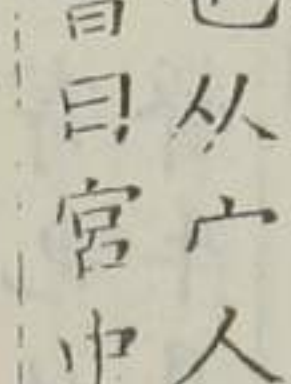 从宀人
曰宮中